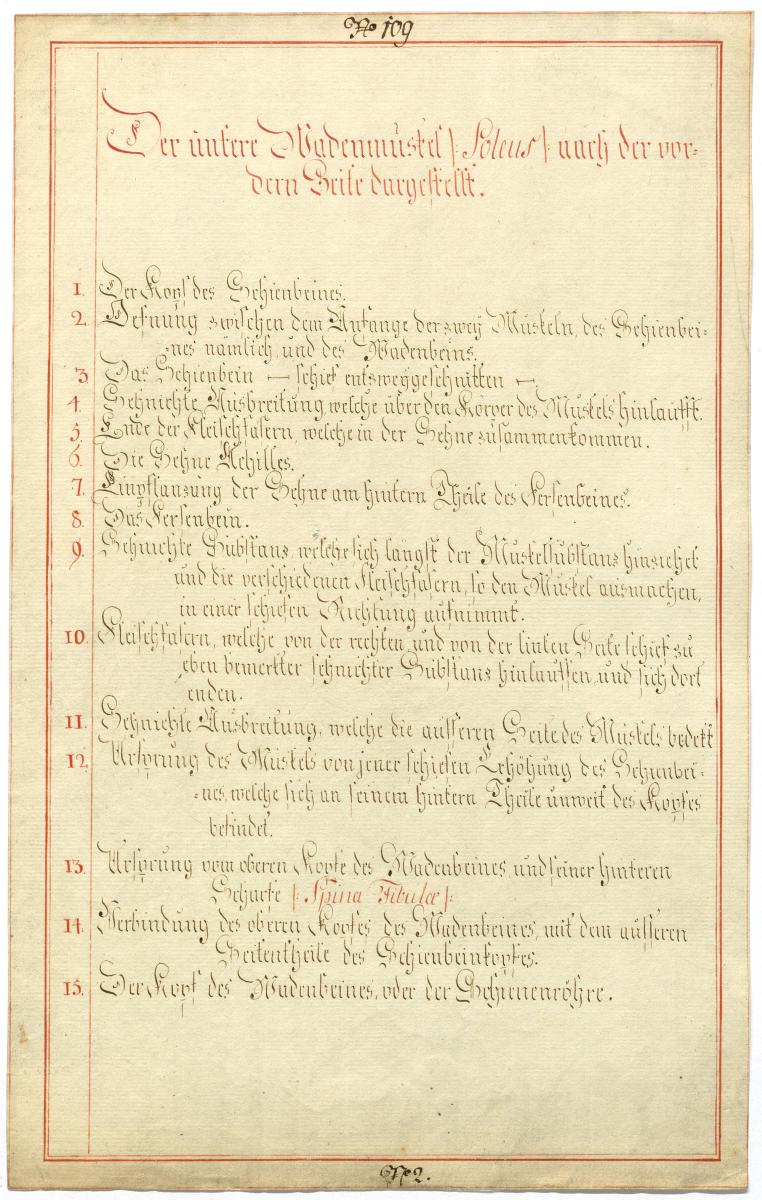 No 109
Der untere Wadenmuskel /: Soleus :/ nach der vor=
dern Seite dargestellt.
1. Der Kopf des Schienbeines.
2. Oefnung zwischen dem Anfange der zwey Muskeln, des Schienbei=
=nes nämlich, und des Wadenbeins.
3 Das Schienbein — schief entzweygeschnitten —.
4. Sehnichte Ausbreitung, welche über den Körper des Muskels hinlaufft.
5. Ende der Fleischfasern, welche in der Sehne zusammenkommen.
6. Die Sehne Achilles.
7. Einpflanzung der Sehne am hintern Theile des Fersenbeines.
8. Das Fersenbein.
9. Sehnichte Substanz, welche sich längst der Muskelsubstanz hinziehet
und die verschiedenen Fleischfasern, so den Muskel ausmachen,
in einer schiefen Richtung aufnimmt.
10. Fleischfasern, welche von der rechten, und von der linken Seite schief zu
eben bemerkter sehnichter Substanz hinlauffen, und sich dort
enden.
11. Sehnichte Ausbreitung, welche die äusseren Seite des Muskels bedekt
12. Ursprung des Muskels von jener schiefen Erhöhung des Schienbei=
=nes, welche sich an seinem hintern Theile unweit des Kopfes
befindet.
13. Ursprung vom oberen Kopfe des Wadenbeines, und seiner hinteren
Schärfe /: Spina Fibulæ :/
14. Verbindung des oberen Kopfes des Wadenbeines, mit dem äusseren
Seitentheile des Schienbeinkopfes.
15. Der Kopf des Wadenbeines, oder der Schienenröhre.
No 2.